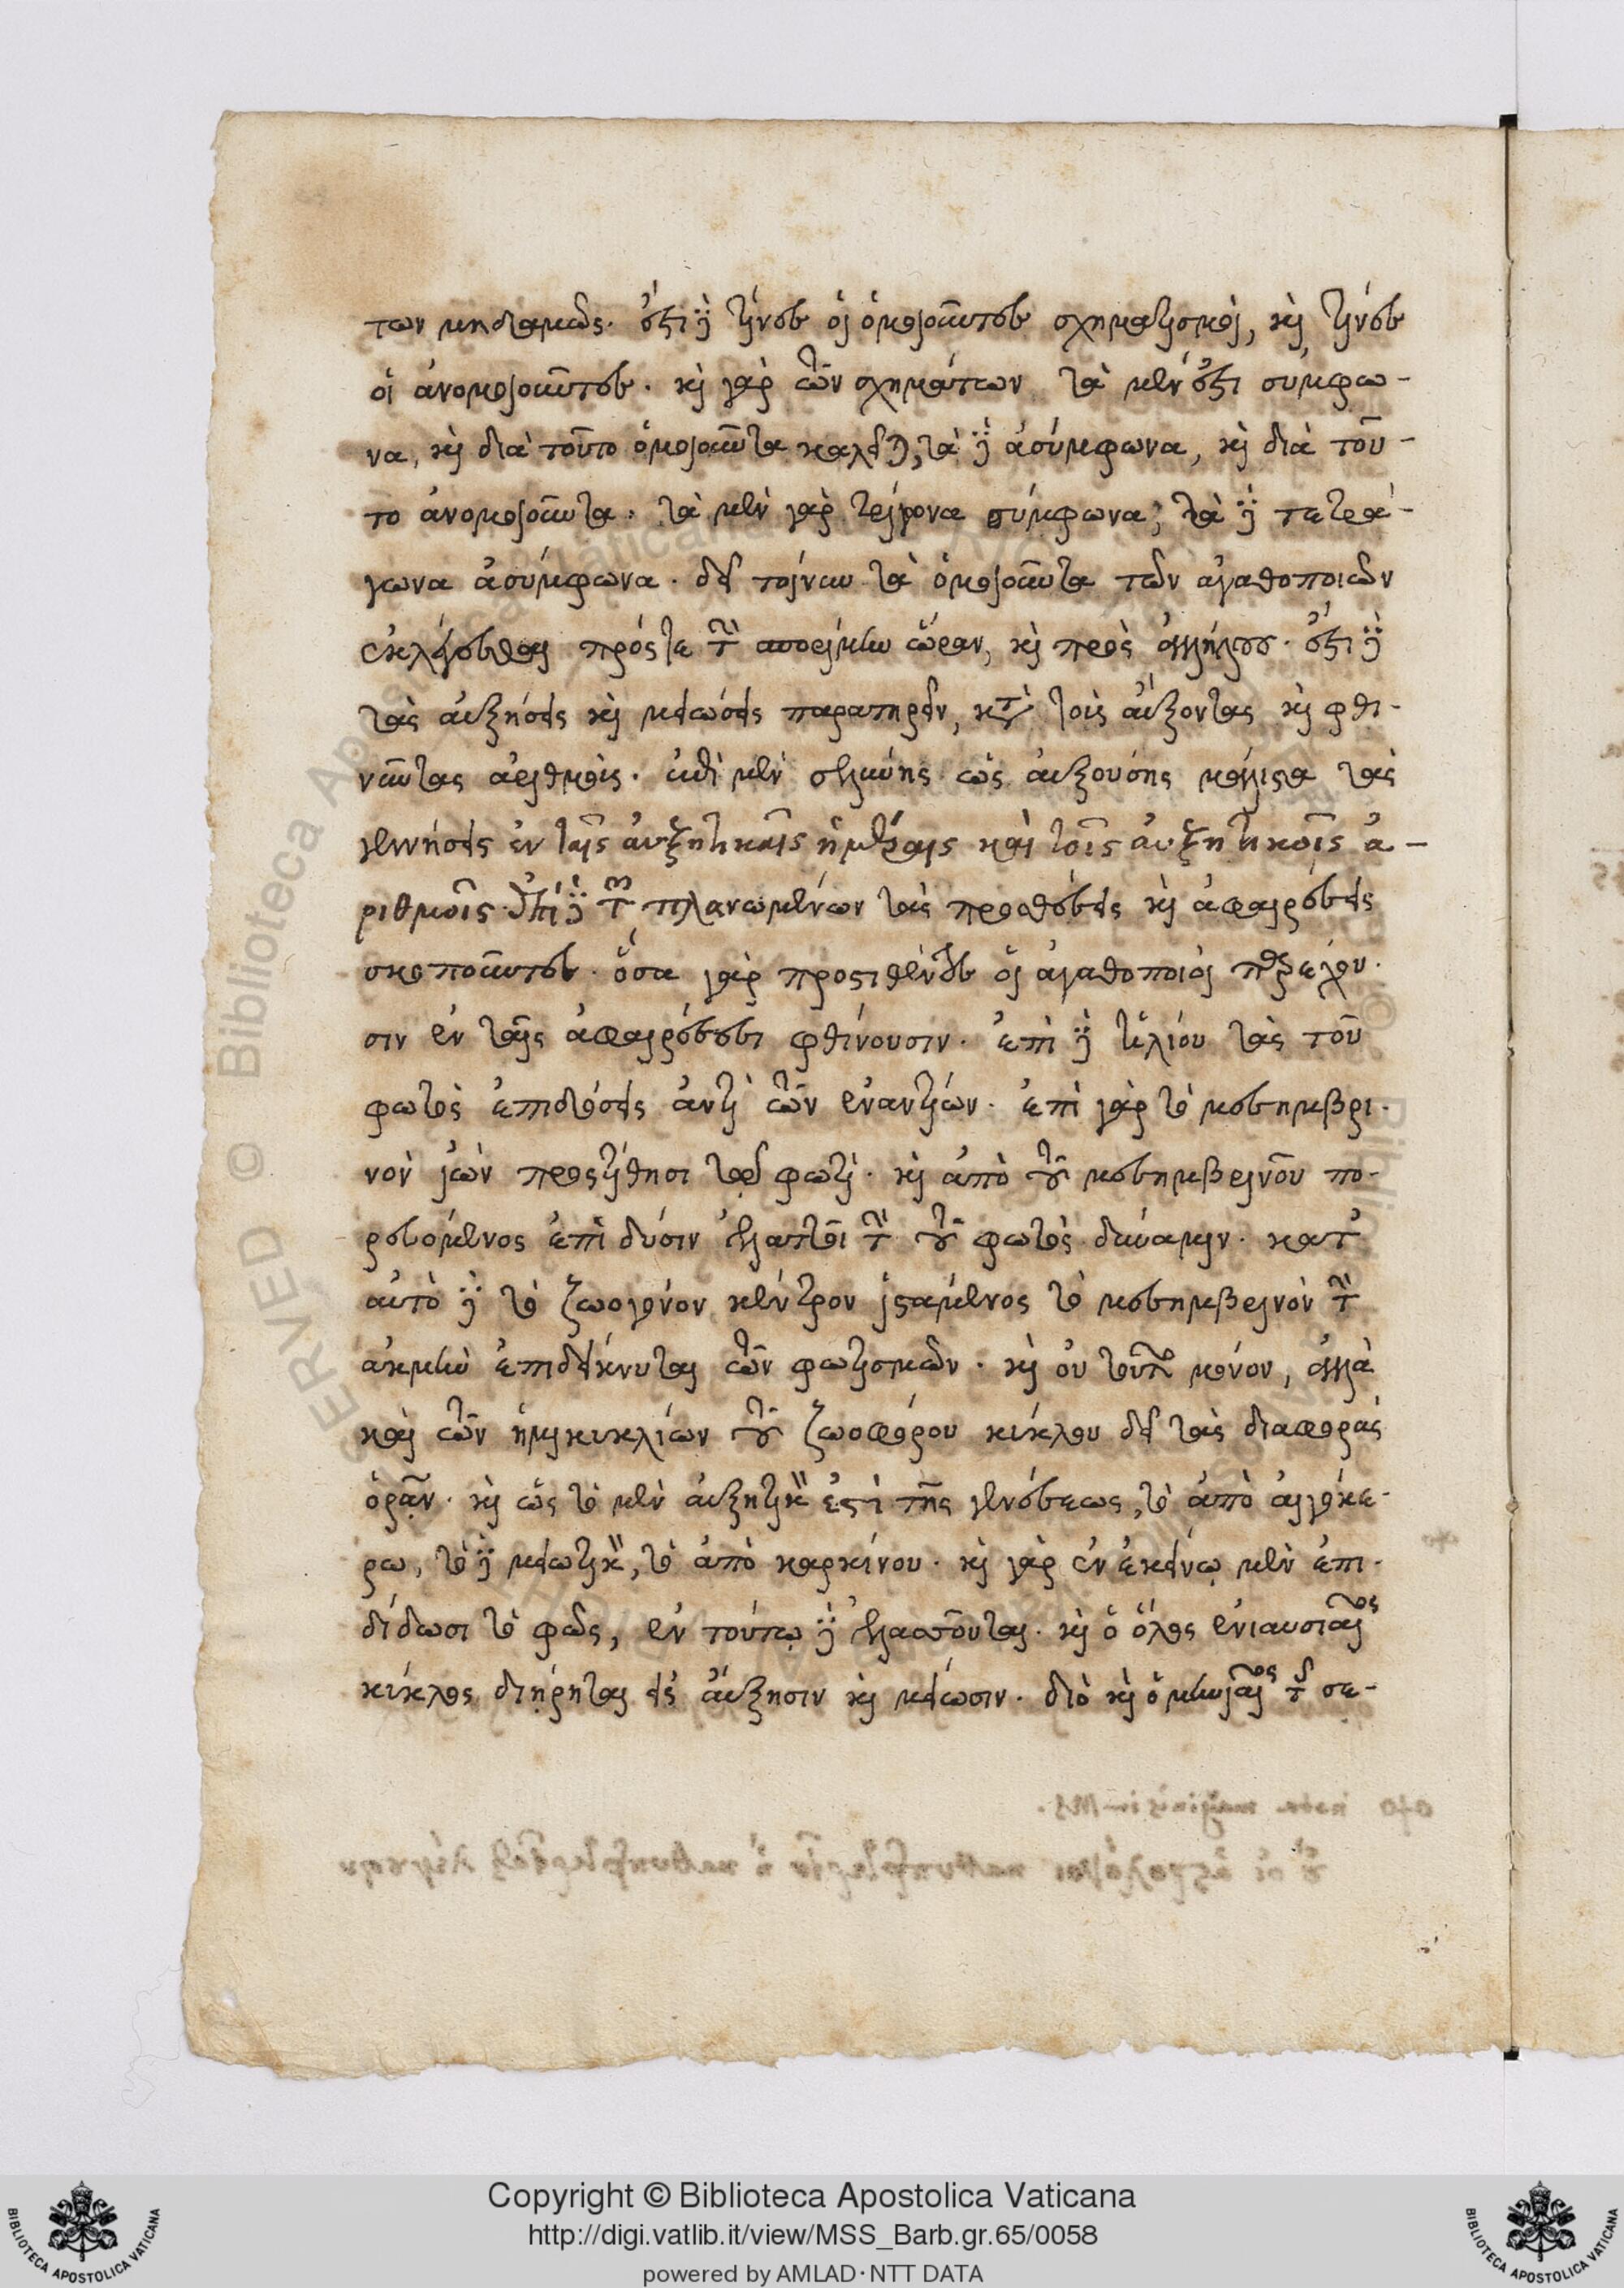 των μηδαμῶς. ἔστι δὲ τίνες οἱ ὁμοιοῦντες σχηματισμοὶ, καὶ τίνες
οἱ ἀνομοιοῦντες. καὶ γὰρ τῶν σχημάτων τὰ μέν ἐστι σύμφω-
να, καὶ διὰ τοῦτο ὁμοιοῦντα καλεῖται, τὰ δὲ ἀσύμφωνα, καὶ διὰ τοῦ-
το ἀνομοιοῦντα. τὰ μὲν γὰρ τρίγονα σύμφωνα, τὰ δὲ τετρά-
γωνα ἀσύμφωνα. δεῖ τοίνυν τὰ ὁμοιοῦντα τῶν ἀγαθοποιῶν
ἐκλέγεσθαι πρός τε τὴν σπορίμην ὥραν, καὶ πρὸς ἀλλήλους. ἔστι δὲ
τὰς αὐξήσεις καὶ μειώσεις παρατηρεῖν, κατὰ τοὺς αὔξοντας καὶ φθί-
νοντας ἀριθμούς. ἐπὶ μὲν σελήνης ὡς αὐξούσης μάλιστα τὰς
γεννήσεις ἐν ταῖς αὐξητικαῖς ἡμέραις καὶ τοῖς αὐξητικοῖς ἀ-
ριθμοῖς. ἐπὶ δὲ τῶν πλανωμένων τὰς προσθέσεις καὶ ἀφαιρέσεις
σκοποῦντες. ὅσα γὰρ προστιθέντες οἱ ἀγαθοποιοὶ παρέχου-
σιν ἐν ταῖς ἀφαιρέσεσι φθίνουσιν. ἐπὶ δὲ ἡλίου τὰς τοῦ
φωτὸς ἐπιδόσεις ἀντὶ τῶν ἐναντίων. ἐπὶ γὰρ τὸ μεσημβρι-
νὸν ἰὼν προστίθησι τῷ φωτί. καὶ ἀπὸ τοῦ μεσημβρινοῦ πο-
ρευόμενος ἐπὶ δύσιν ἐλαττοῖ τὴν τοῦ φωτὸς δύναμιν. κατ'
αὐτὸ δὲ τὸ ζωογόνον κέντρον ἱστάμενος τὸ μεσημβρινὸν τὴν
ἀκμὴν ἐπιδείκνυται τῶν φωτισμῶν. καὶ οὐ τοῦτο μόνον, ἀλλὰ
καὶ τῶν ἡμικυκλίων τοῦ ζωοφόρου κύκλου δεῖ τὰς διαφορὰς
ὁρᾷν. καὶ ὡς τὸ μὲν αὐξητικὸν ἐστὶ τῆς γενέσεως, τὸ ἀπὸ αἰγόκε-
ρω, τὸ δὲ μειωτικὸν, τὸ ἀπὸ καρκίνου. καὶ γὰρ ἐν ἐκείνῳ μὲν ἐπι-
δίδωσι τὸ φῶς, ἐν τούτῳ δὲ ἐλαττοῦται. καὶ ὁ ὅλος ἐνιαυσιαῖος
κύκλος διῄρηται εἰς αὔξησιν καὶ μείωσιν. διὸ καὶ ὁ μηνιαῖος τῆς σε-
Copyright © Biblioteca Apostolica Vaticana
http://digi.vatlib.it/view/MSS_Barb.gr.65/0058
powered by AMLAD·NTT DATA
BIBLIOTECA APOSTOLICA VATICANA
BIBLIOTECA APOSTOLICA VATICANA